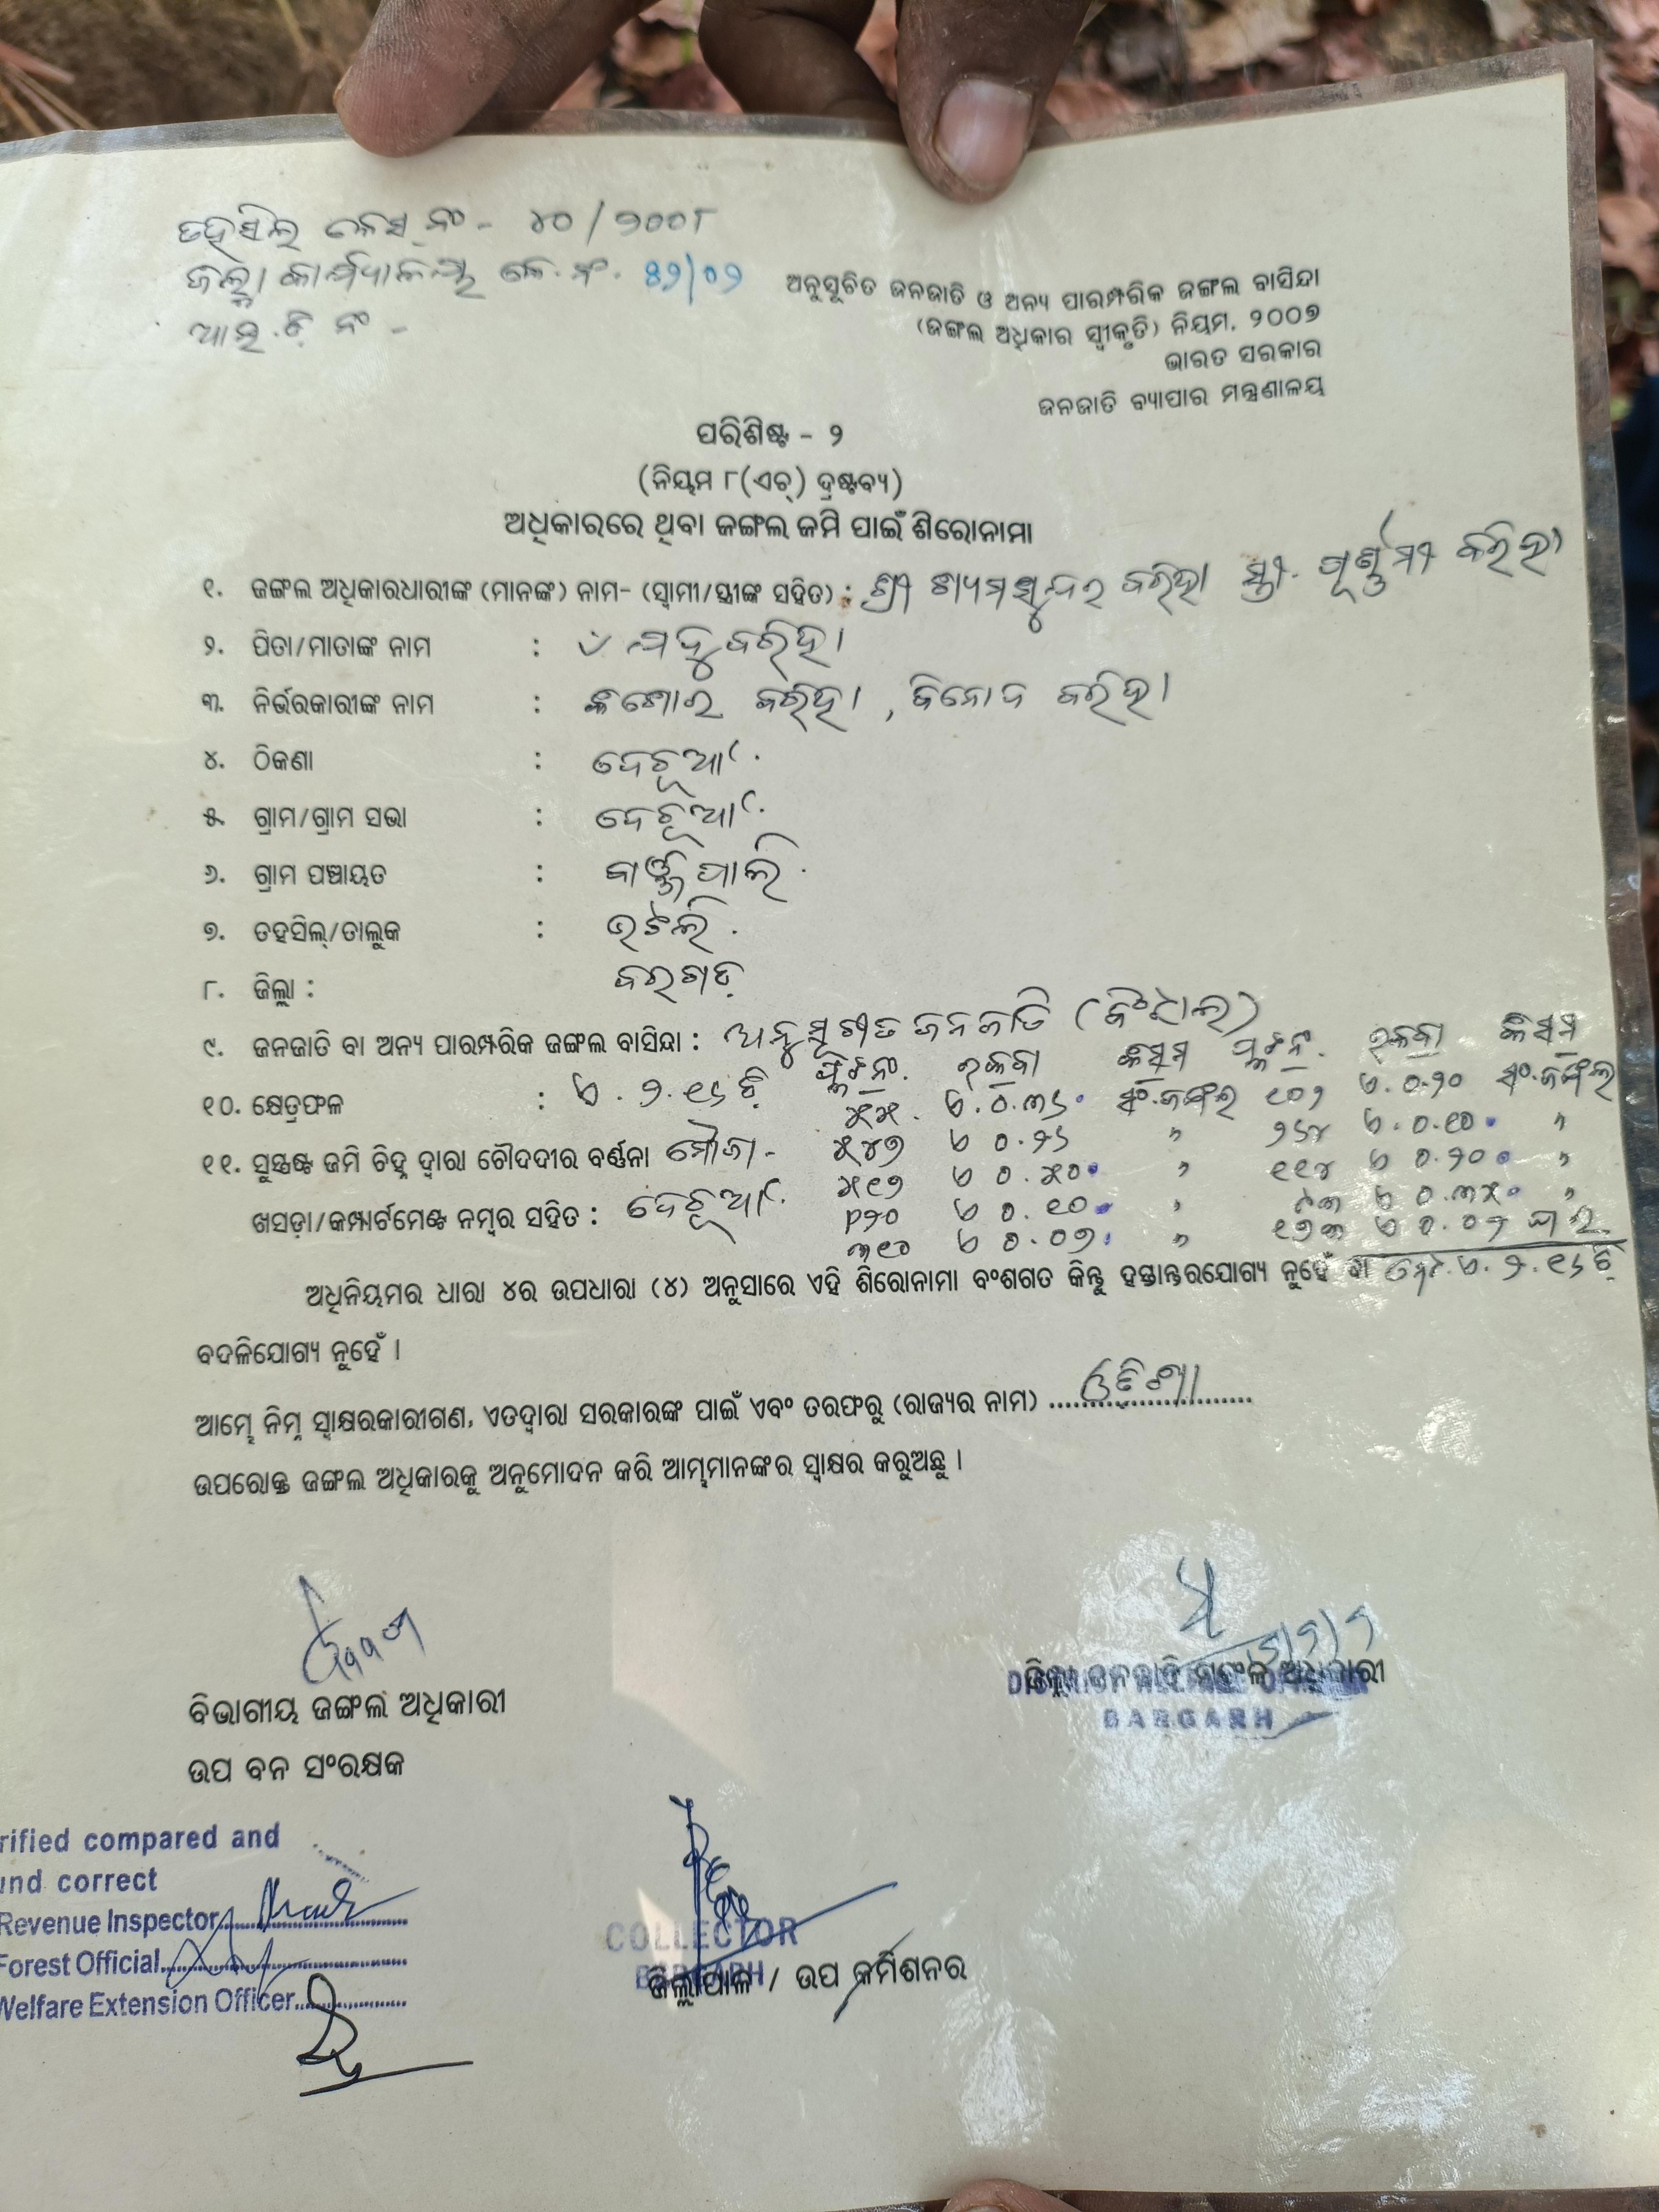 ତହସିଲ କେସ ନଂ - ୪୦/୨୦୦୮
ଜିଲ୍ଲା କାର୍ଯ୍ୟାଳୟ କେ. ନଂ. ୫୨/୦୨
ଆର.ଟି ନଂ -
ଅନୁସୂଚିତ ଜନଜାତି ଓ ଅନ୍ୟ ପାରମ୍ପରିକ ଜଙ୍ଗଲ ବାସିନ୍ଦା
(ଜଙ୍ଗଲ ଅଧିକାର ସ୍ୱୀକୃତି) ନିୟମ, ୨୦୦୭
ଭାରତ ସରକାର
ଜନଜାତି ବ୍ୟାପାର ମନ୍ତ୍ରଣାଳୟ
ପରିଶିଷ୍ଟ - ୨
(ନିୟମ ୮(ଏଚ୍) ଦ୍ରଷ୍ଟବ୍ୟ)
ଅଧିକାରରେ ଥିବା ଜଙ୍ଗଲ ଜମି ପାଇଁ ଶିରୋନାମା
୧. ଜଙ୍ଗଲ ଅଧିକାରଧାରୀଙ୍କ (ମାନଙ୍କ) ନାମ- (ସ୍ୱାମୀ/ସ୍ତ୍ରୀଙ୍କ ସହିତ) : ଶ୍ରୀ ଶ୍ୟାମସୁନ୍ଦର ବରିହା ସ୍ତ୍ରୀ. ପୂର୍ଣ୍ଣମୀ ବରିହା
୨. ପିତା/ମାତାଙ୍କ ନାମ : ବରିହା
୩. ନିର୍ଭରକାରୀଙ୍କ ନାମ : କିଶୋର ବରିହା, ବିନୋଦ ବରିହା
୪. ଠିକଣା : ଦେଚୂଆଁ
୫. ଗ୍ରାମ/ଗ୍ରାମ ସଭା : ଦେଚୂଆଁ
୬. ଗ୍ରାମ ପଞ୍ଚାୟତ : କାଞ୍ଜିପାଲି
୭. ତହସିଲ୍/ତାଲୁକ : ଭଟଲି
୮. ଜିଲ୍ଲା : ବରଗଡ଼
୯. ଜନଜାତି ବା ଅନ୍ୟ ପାରମ୍ପରିକ ଜଙ୍ଗଲ ବାସିନ୍ଦା : ଅନୁସୂଚୀତ ଜନଜାତି (ବିଂଝାଲ)
ପ୍ଲଟନଂ. ରକବା କିସମ ପ୍ଲଟନଂ. ରକବା କିସମ
୧୦. କ୍ଷେତ୍ରଫଳ : ଏ. ୨.୧୬ ଡି ୫୫ ଏ.୦.୩୬ ସଂ.ଜଙ୍ଗଲ ୧୦୨ ଏ.୦.୨୦ ସଂ.ଜଙ୍ଗଲ
୫୪୭ ଏ ୦.୨୬ " ୨୬୪ ଏ.୦.୧୦ "
୧୧. ସୁସ୍ପଷ୍ଟ ଜମି ଚିହ୍ନ ଦ୍ୱାରା ଚୌଦଦୀର ବର୍ଣ୍ଣନା ମୌଜା - ୫୧୭ ଏ ୦.୫୦ " ୧୧୪ ଏ ୦.୨୦ "
ଖସଡ଼ା/କମ୍ପାର୍ଟମେଣ୍ଟ ନମ୍ବର ସହିତ : ଦେଚୂଆଁ ଏ ୦.୧୦ " ଏ ୦.୩୫ "
୩୧୦ ଏ ୦.୦୭ " ୧୭୩ ଏ ୦.୦୨
ଅଧିନିୟମର ଧାରା ୪ର ଉପଧାରା (୪) ଅନୁସାରେ ଏହି ଶିରୋନାମା ବଂଶଗତ କିନ୍ତୁ ହସ୍ତାନ୍ତରଯୋଗ୍ୟ ନୁହେଁ ବା ମୋଟ.ଏ. ୨.୧୬ ଡି
ବଦଳିଯୋଗ୍ୟ ନୁହେଁ ।
ଆମ୍ଭେ ନିମ୍ନ ସ୍ୱାକ୍ଷରକାରୀଗଣ, ଏତଦ୍ୱାରା ସରକାରଙ୍କ ପାଇଁ ଏବଂ ତରଫରୁ (ରାଜ୍ୟର ନାମ) ଓଡ଼ିଶା
ଉପରୋକ୍ତ ଜଙ୍ଗଲ ଅଧିକାରକୁ ଅନୁମୋଦନ କରି ଆମ୍ଭମାନଙ୍କର ସ୍ୱାକ୍ଷର କରୁଅଛୁ ।
ବିଭାଗୀୟ ଜଙ୍ଗଲ ଅଧିକାରୀ
ଉପ ବନ ସଂରକ୍ଷକ
ଜିଲ୍ଲା ଜନଜାତି ମଙ୍ଗଳ ଅଧିକାରୀ
BARGARH
rified compared and
und correct
Revenue Inspector
Forest Official
Welfare Extension Officer
COLLECTOR
BARGARH
ଜିଲ୍ଲାପାଳ / ଉପ କମିଶନର